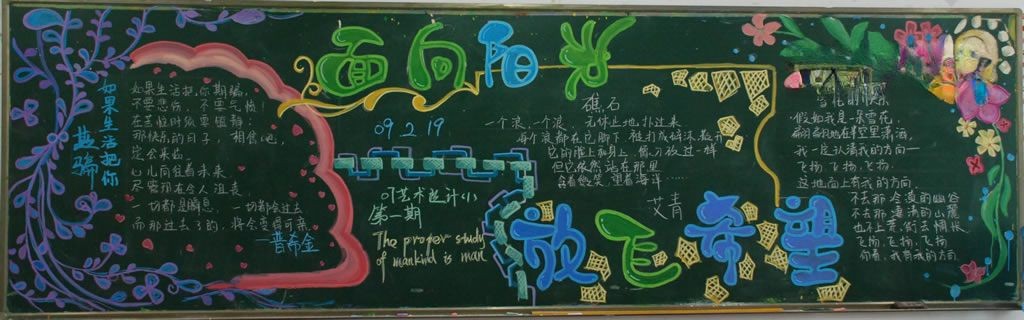 面向阳光
放飞希望
如果生活把你
欺骗
如果生活把你欺骗，
不要悲伤，不要气愤！
在苦恼时须要镇静，
那快乐的日子，相信吧，
定会来临，
心儿向往着未来
尽管现在令人沮丧
一切都是瞬息，一切都会过去
而那过去了的，将会变得可亲。
—普希金
09 2 19
07艺术设计(1)
第一期
The proper study
of mankind is man
礁石
一个浪，一个浪，无休止地扑过来
每个浪都在它脚下，被打成碎沫散开
它的脸上和身上，像刀砍过一样
但它依然站在那里
含着微笑，望着海洋……
艾青
雪花的快乐
假如我是一朵雪花，
翩翩的在半空里潇洒，
我一定认清我的方向—
飞扬，飞扬，飞扬，
这地面上有我的方向
不去那冷漠的幽谷
不去那凄清的山麓
也不上荒街去惆怅
飞扬，飞扬，飞扬
你看，我有我的方向